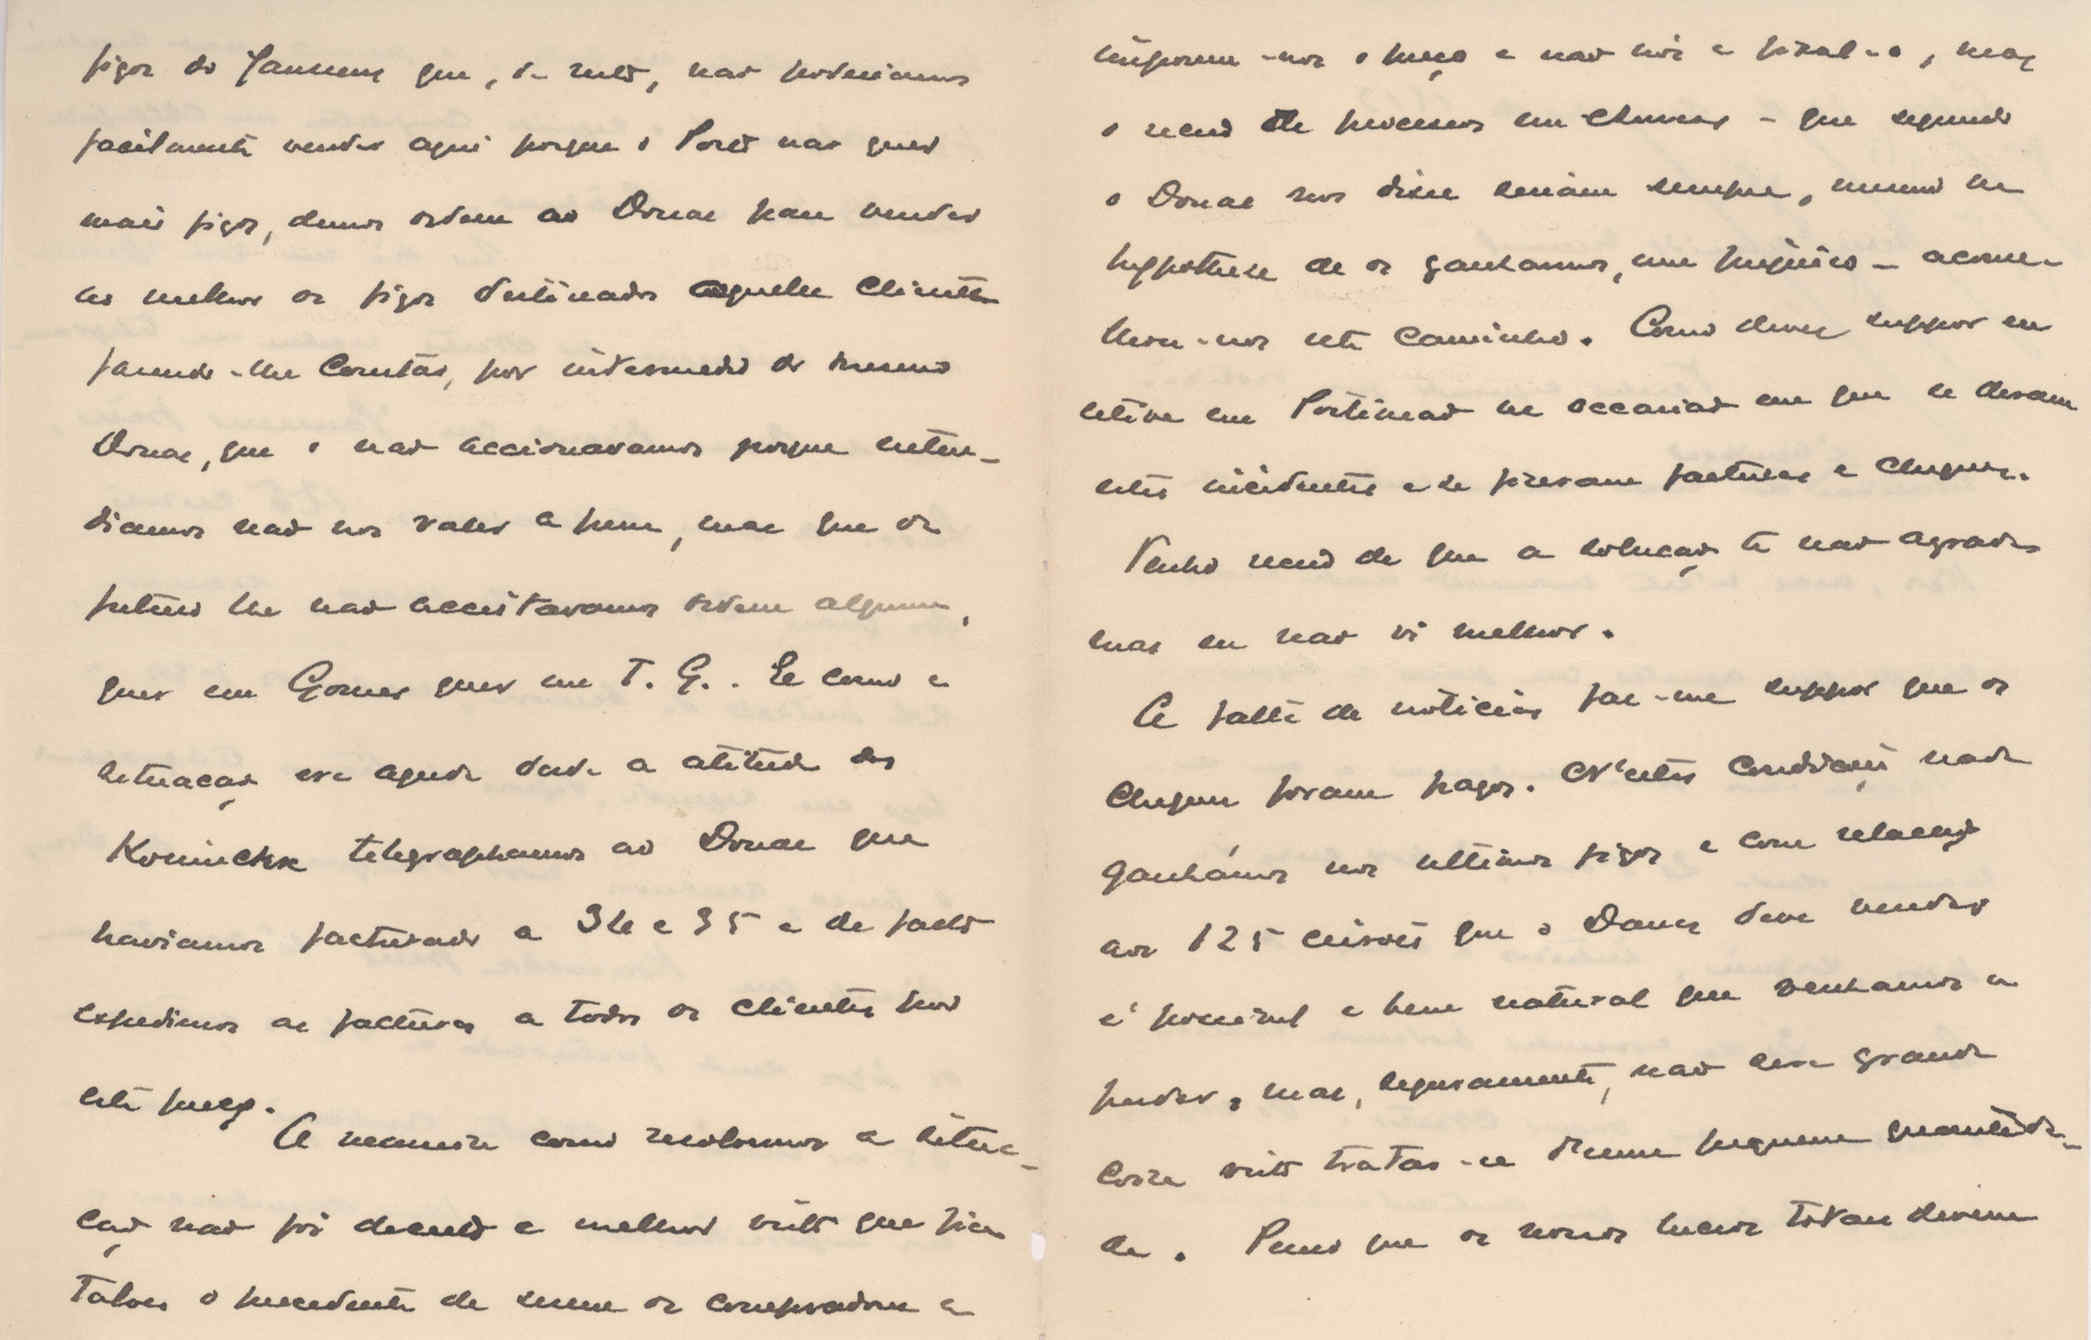 figos do Janssens que, de resto, nao poderiamos
facilmente vender aqui porque o Porto nao quer
mais figos, demos ordem ao Donas para vender
ao melhor os figos destinados aquelle cliente
fazendo-lhe constar, por intermedio do mesmo
Donas, que o nao accionavamos porque enten-
diamos nao nos valer a pena, mas que de
futuro lhe nao acceitavamos ordem alguma,
quer em Gomes quer em T. G.. E como a
situaçao era aguda dada a atitude do
Koninckx telegraphamos ao Donas que
haviamos facturado a 34 e 35 e de facto
expedimos as facturas a todos os clientes por
este preço.
A maneira como resolvemos a situa-
çao nao foi decerto a melhor visto que fica
talvez o precedente de serem os compradores a
imporem-nos o preço e nao nós a fixal-o, mas
o receio de processos em Anvers - que segundo
o Donas nos disse seriam sempre, mesmo na
hypothese de os ganharmos, um prejuizo - aconse-
lhou-nos este caminho. Como deves suppor eu
estive em Portimao na occasiao em que se deram
estes incidentes e se fizeram facturas e cheques.
Tenho receio de que a soluçao te nao agrade
mas eu nao vi melhor.
A falta de noticias faz-me suppor que os
cheques foram pagos. N'estas condições nada
ganhámos nos ultimos figos e com relaçao
aos 125 ceirões que o Donas deve vender
é possivel e bem natural que venhamos a
perder, mas, seguramente, nao sera grande
coisa visto tratar-se d'uma pequena quantida-
de. Penso que os nossos lucros totaes devem